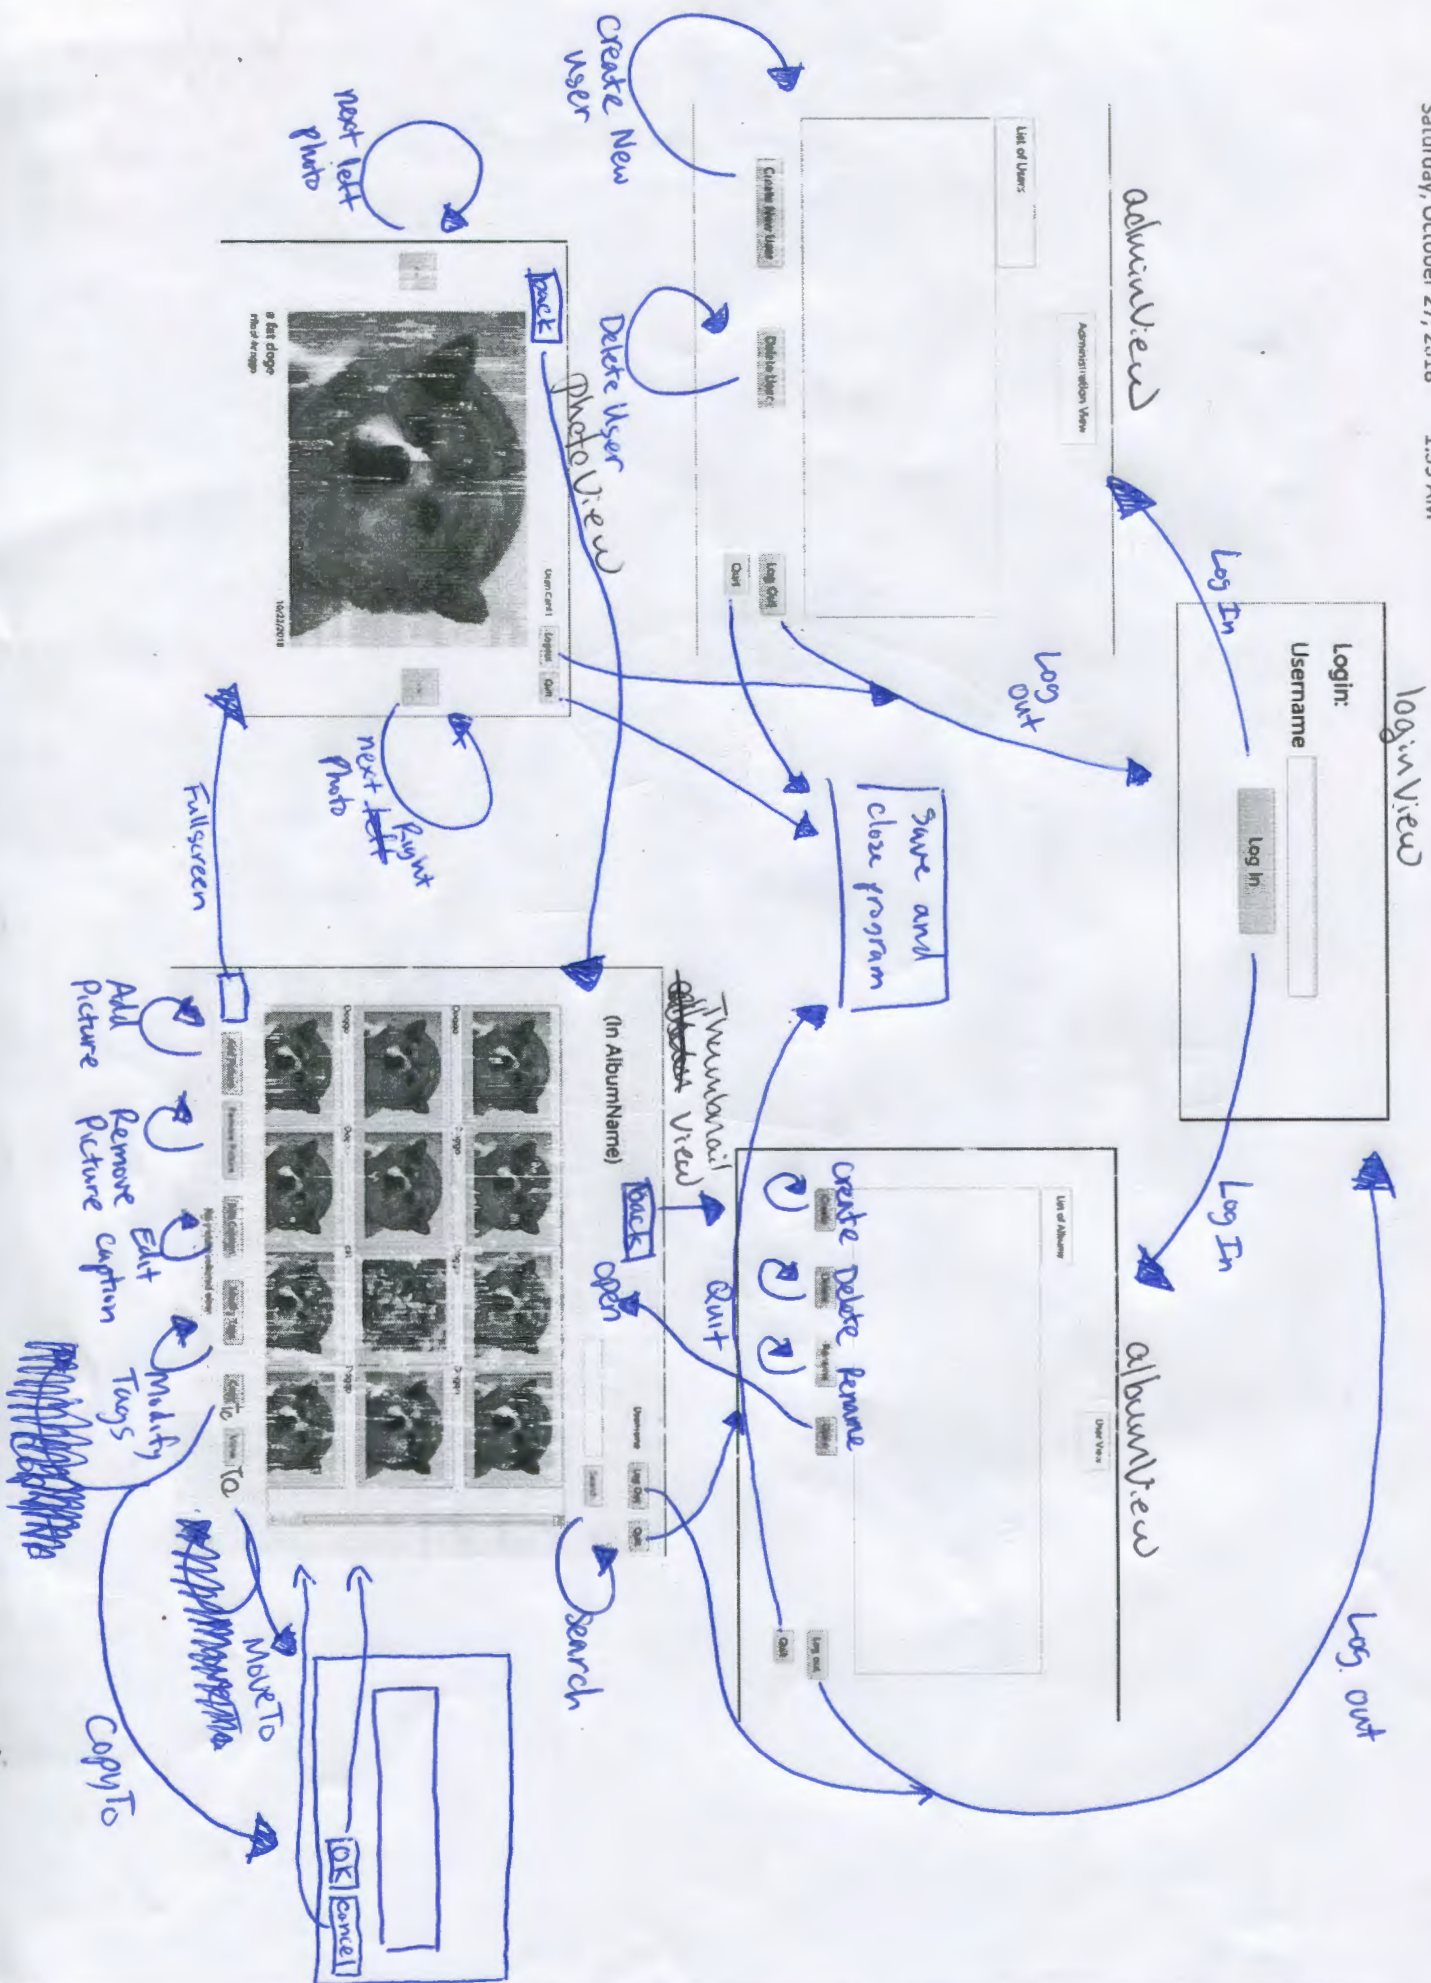 Saturday, October 27, 2018
1:39 AM
loginView
Login:
Username
Log In
Log In
Log In
Log out
Log out
adminView
Administration View
List of Users
Create New User
Delete User
Log Out
Quit
Create New
User
Delete User
Save and
close program
albumView
User View
List of Albums
Create
Delete
Rename
Open
Log out
Quit
Create Delete Rename
open
Quit
photoView
back
Logout
Quit
a fat doge
10/22/2018
next left
photo
Right
next left
photo
Fullscreen
Thumbnail
View
(In AlbumName)
back
Username
Log Out
Quit
Search
Search
Doggo
Doggo
Doggo
Doggo
Doggo
Doggo
Add Picture
Remove Picture
To
Add
Picture
Remove
Picture
Edit
caption
Modify
Tags
MoveTo
CopyTo
OK
cancel